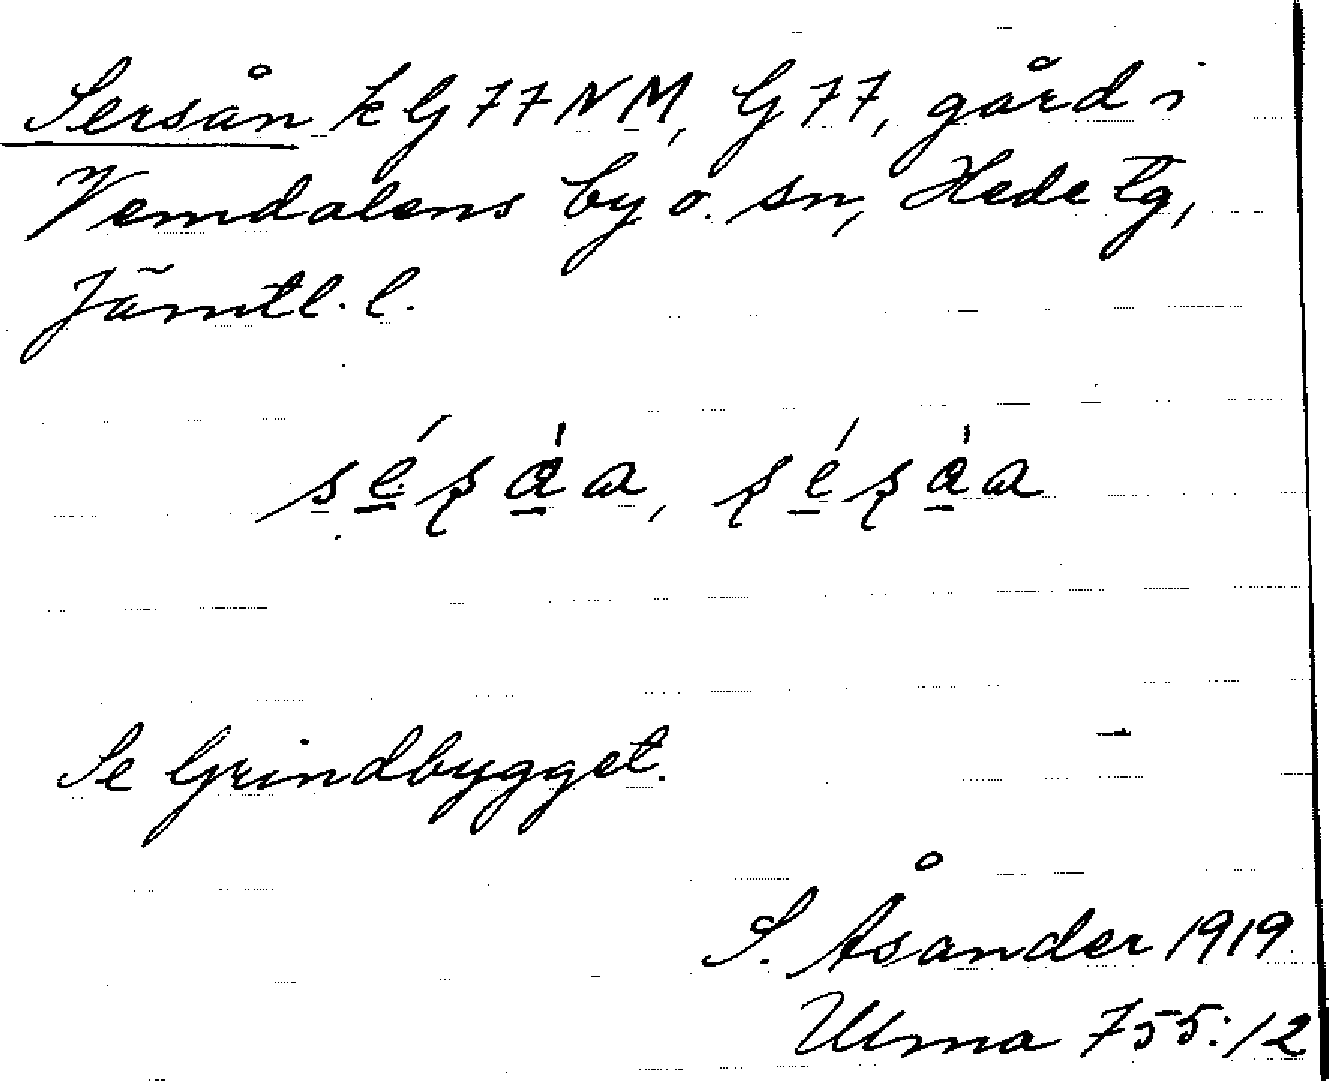 Sersån k G 77 N M, G 77, gård i
Vemdalens by o. sn, Hede tg,
Jämtl. l.
Se Grindbygget.
S. Åsander 1919
Ulma 755:12